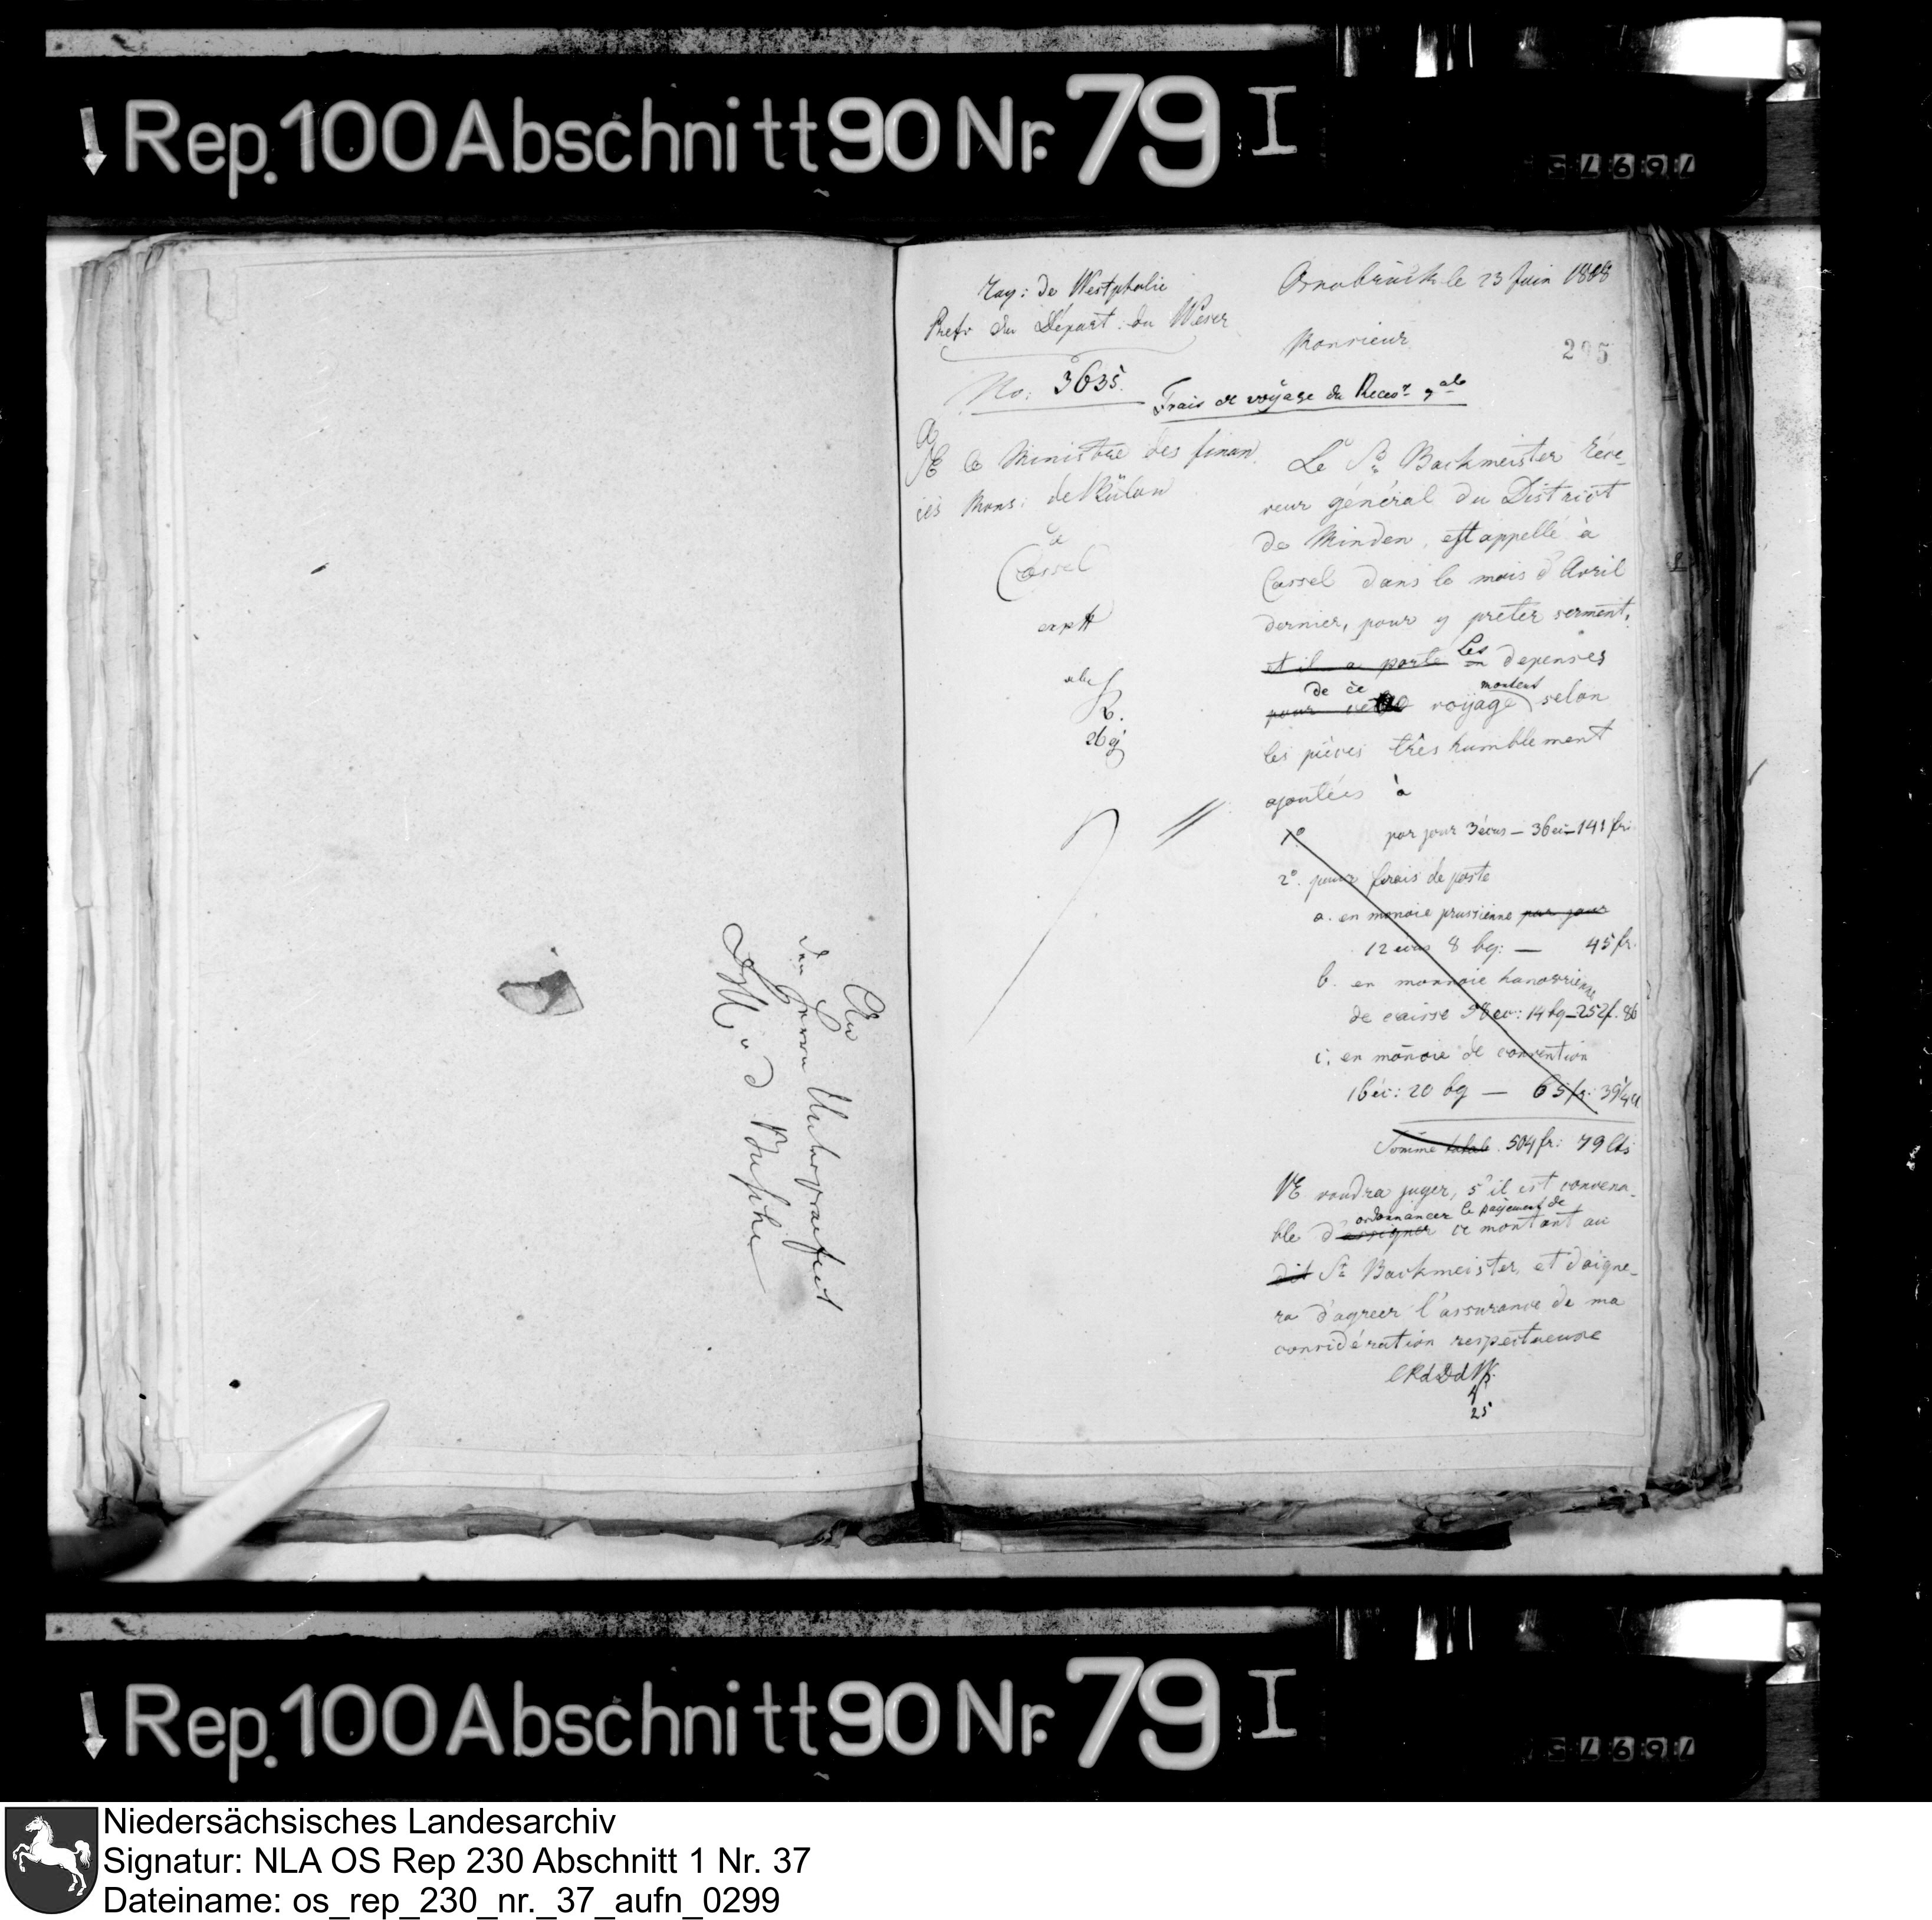 Rep. 100 Abschnitt 90 Nr. 79 I
7 6 9 7 5
An
den Herrn Unterpraefect
v. d. Bussche
Roy: de Westphalie
Prefr du Départ. du Weser
No: 3635.
Osnabrück le 23 Juin 1808
Monsieur
205
Frais de voÿage du Recevr gal
a
SE le Ministre des finan
ces Mons: de Bülow
à
Cassel
exptt
R.
26
Le Sr Backmeister réce-
veur général du District
de Minden, est appellé à
Cassel dans le mois d'Avril
dernier, pour y preter serment,
et il a porté Les depenses
de ce
montent
pour voÿage selon
les pièces très humblement
ajoutées à
1o par jour 3 écus — 36 ec — 141 fr:
2o. pour frais de poste
a. en monoie prussienne par jour
12 ecus 8 bg: — 45 fr.
b. en monnoie hanovrienne
de caisse 58 ec: 14 bg — 252 f. 86
c. en monoie de convention
16 éc: 20 bg — 65 fr: 39 1/4
Somme totale. 504 fr: 79 Cts
VE voudra juger, s'il est convena-
ordonnancer le payement de
ble d'assigner ce montant au
dit Sr Backmeister, et daigne-
ra d'agreer l'assurance de ma
considération respectueuse
25
Rep. 100 Abschnitt 90 Nr. 79 I
7 6 9 7 5
Niedersächsisches Landesarchiv
Signatur: NLA OS Rep 230 Abschnitt 1 Nr. 37
Dateiname: os_rep_230_nr._37_aufn_0299